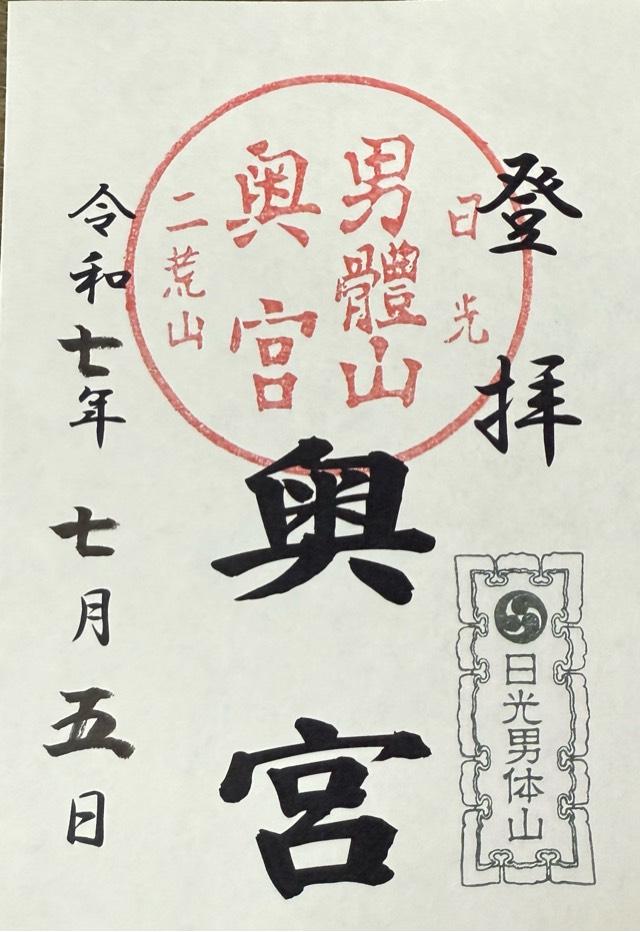 登拝
日光男体山
日光
男體山
奥宮
二荒山
奥宮
令和七年 七月五日